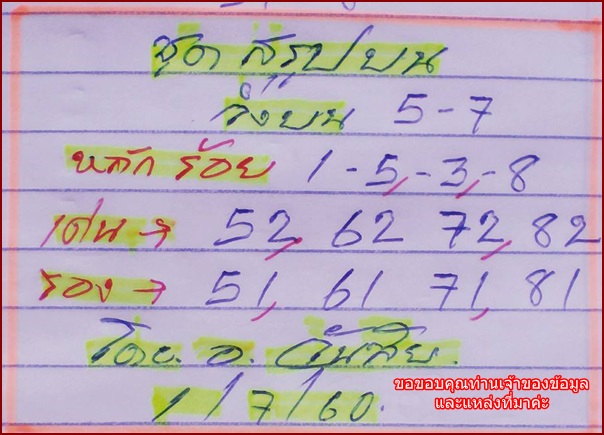 ชุด สรุปบน
วิ่งบน 5-7
หลัก ร้อย 1-5,-3,-8
เด่น → 52, 62 72, 82
รอง → 51, 61 71, 81
โดย. อ.
1/7/60.
ขอขอบคุณท่านเจ้าของข้อมูล
และแหล่งที่มาค่ะ